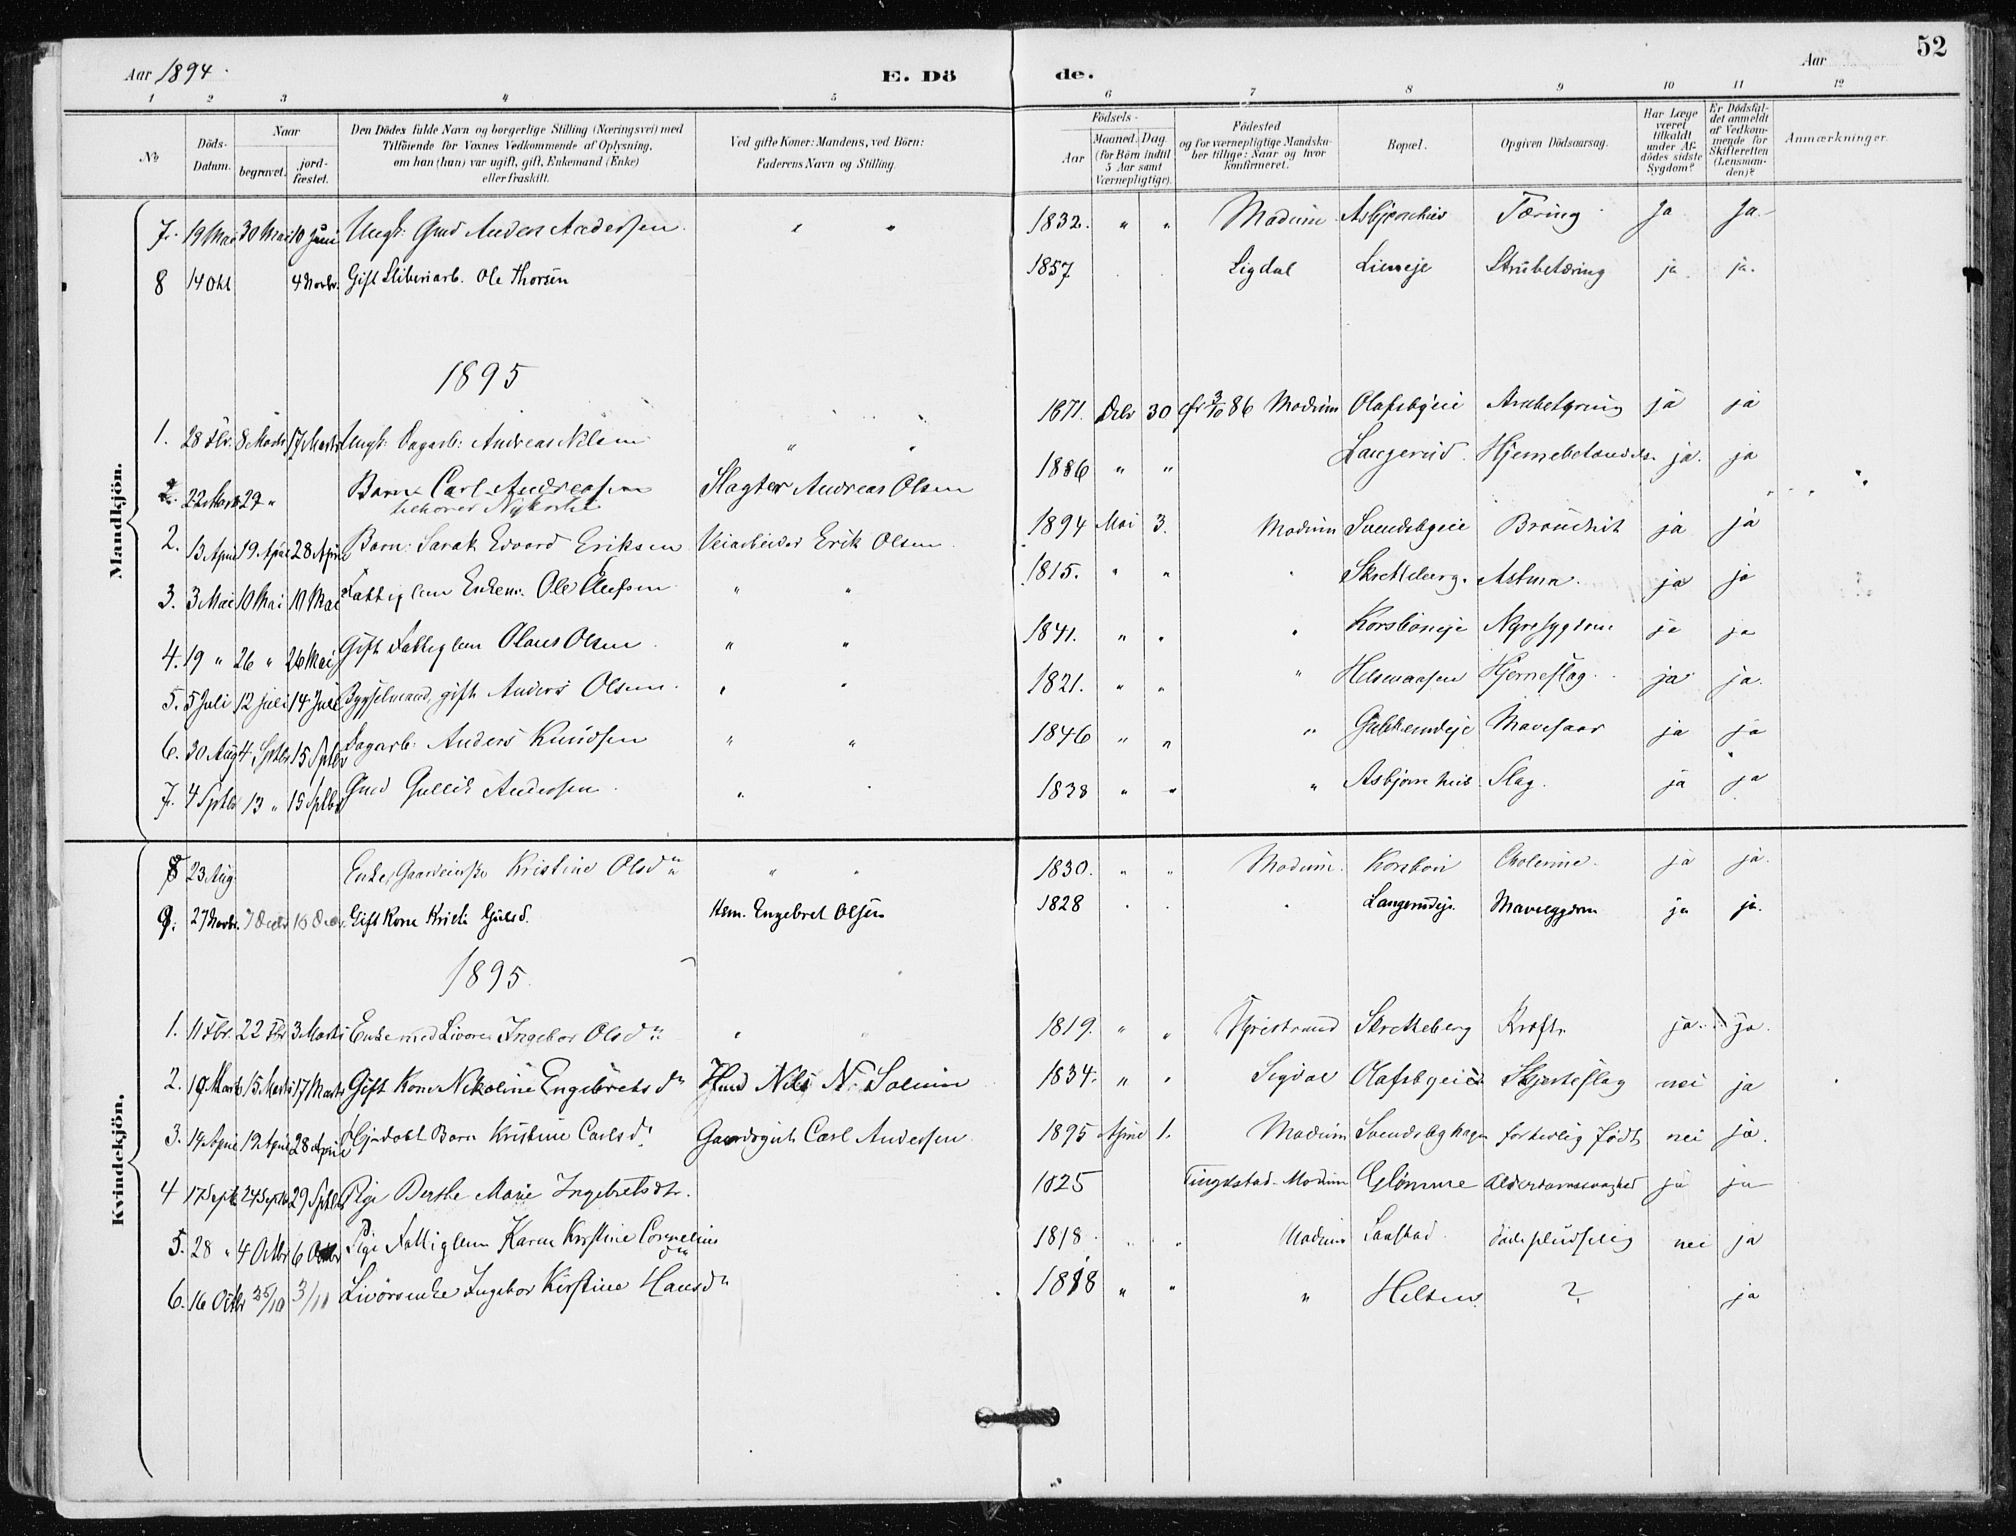 52
Aar 1894.
E. Dö
de.
Aar
1 2 3 4 5 6 7 8 9 10 11 12
No
Döds-Datum.
Naar
begravet.
jord-fæstet.
Den Dödes fulde Navn og borgerlige Stilling (Næringsvei) med
Tilföiende for Voxnes Vedkommende af Oplysning,
om han (hun) var ugift, gift, Enkemand (Enke)
eller fraskilt.
Ved gifte Koner: Mandens, ved Börn:
Faderens Navn og Stilling.
Födsels-
Aar
Maaned. Dag.
(for Börn indtil
5 Aar samt
Værnepligtige).
Födested
og for værnepligtige Mandsku-
ber tillige: Naar og hvor
konfirmeret.
Bopæl.
Opgiven Dödsaarsag.
Har Læge
været
tilkaldt
under Af-
dödes sidste
Sygdom?
Er Dödsfal-
det anmeldt
af Vedkom-
mende for
Skifteretten
(Lensman-
den)?
Anmærkninger.
Mandkjön.
7. 19 Mai 30 Mai 10 Juni Ungk. Gmd Anders Andersen. " " 1832. " " Modum Asbjørnhus Tæring Ja Ja
8 14 Okt 4 Novbr. Gift Sliberiarb. Ole Thorsen 1857 Sigdal Lieneje Strubetæring ja. ja.
1895
1. 28 Fbr. 8 Marts 17 Marts Ungk. Dagarb. Andreas Nilsen " " 1871. Decbr 30 3/10 86 Modum Olafsbyeie ja ja
2. 22 Marts 29 " Barn Carl Andreasen Slagter Andreas Olsen 1886 " " Langerud Hjernebetændels. ja. ja
tilhører Nykirke
2. 13 April 19 April 28 April Barn: Sarak Edvard Eriksen Veiarbeider Erik Olsen 1894 Mai 3. Modum Svendsbyeie ja ja
3. 3 Mai 10 Mai 10 Mai Fattiglem Enkem. Ole Olufsen " " 1815. " " " Skretteberg. Astma ja ja
4. 19 " 26 " 26 Mai Gift Fattiglem Olaus Olsen " " 1841. " " " Korsboneje Nyresygdom ja ja
5. 5 Juli 12 Juli 14 Juli Bygselmand, gift Anders Olsen. " " 1821. " " " Hjerneslag ja ja.
6. 30 Aug 4 Sptbr 15 Sptbr Dagarb: Anders Knudsen " " 1846 " " " Mavesaar ja ja
7. 4 Sptbr 13 " 15 Sptbr Gmd Gullik Andersen. " 1838 " " " Asbjørnhus Slag. ja ja
Kvindekjön.
8 23 Aug Enke, Gaardeierske Kristine Olsdn " " 1830. " " Modum. Korsbon Cholerine. ja ja.
9. 27 Novbr. 7 Decbr 10 Decbr. Gift Kone Kristi Gulsd. Hsm. Engebret Olsen 1828 " Langerudeje. Mavesygdom ja ja.
1895.
1. 11 Fbr. 22 Fbr 3 Marts Enke med Livøre Ingebor Olsdn " 1819. " " Tyristrand Skretteberg Kræft. ja. ja.
2. 10 Marts 15 Marts 17 Marts Gift Kone Nikoline Engebretsdn Hmd Nils N. Solum 1834. " " Sigdal Olafsbyeie Hjerteslag nei ja
3. 14 April 19 April 28 April Hjdøbt Barn Kristine Carlsd. Gaardsgut Carl Andersen 1895 April 1. Modum Svendsbyhagen fortidlig født nei ja.
4 17 Septb 24 Septb 29 Sptbr Pige Berthe Marie Ingebretsdtr. 1825 Tingelstad. Modum Glømme Alderdomssvaghed ja ja
5. 28 " 4 Octbr 6 Octbr Pige Fattiglem Karen Kirstine Cornelius 1818. " " Modum Saastad døde pludselig nei ja
dn
6. 16 Octbr 25/10 3/11 Livørsenke Ingebor Kirstine Hansdn 1818 " " " Helsen. ? ja